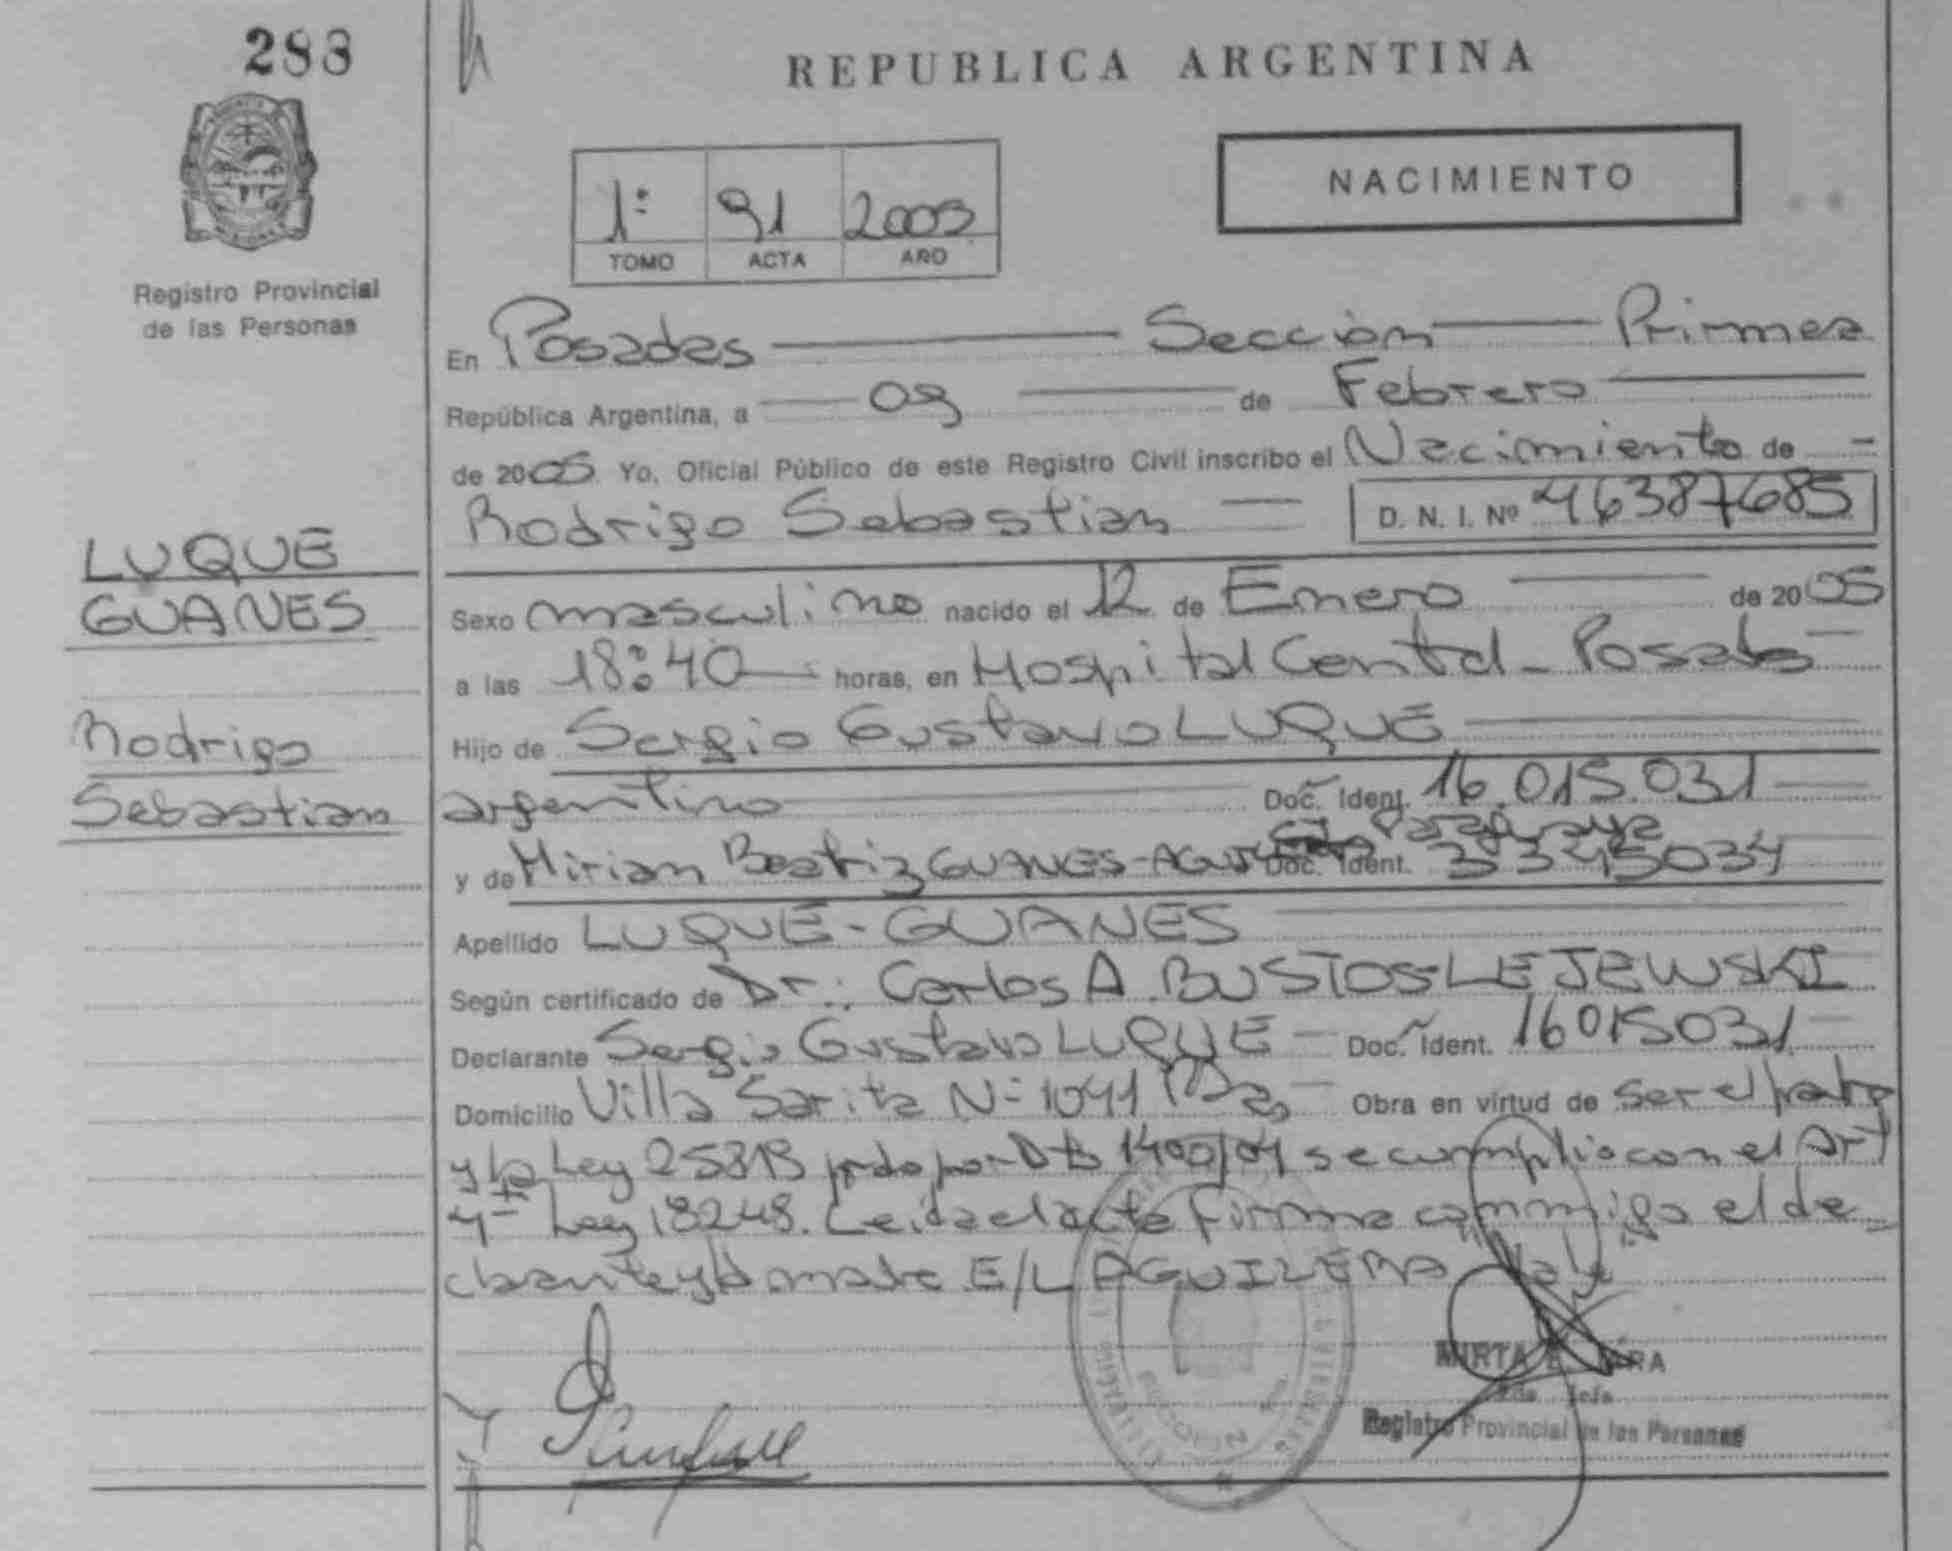 288
REPUBLICA ARGENTINA
NACIMIENTO
1º 91 2005
TOMO ACTA AÑO
Registro Provincial
de las Personas
En Posadas Sección Primera
República Argentina, a 09 de Febrero
de 2005 Yo, Oficial Público de este Registro Civil inscribo el Nacimiento de
Rodrigo Sebastian D. N. I. Nº 46387685
LUQUE
GUANES
Rodrigo
Sebastian
Sexo masculino nacido el 12 de Enero de 2005
a las 18:40 horas, en Hospital Central - Posadas
Hijo de Sergio Gustavo LUQUE
argentino Doc. Ident. 16.015.031
Paraguaya
y de Mirian Beatriz GUANES- Doc. Ident. 3345034
Apellido LUQUE-GUANES
Según certificado de Dr.: Carlos A. BUSTOS-LEJEWSKI
Declarante Sergio Gustavo LUQUE - Doc. Ident. 16015031
Domicilio Villa Sarita Nº 1041 Obra en virtud de ser el padre
y la Ley 25819 por Dto 1400/01 se cumplio con el Art
4º Ley 18248. Leida el acta firma conmigo el de-
clarante y la madre E/L AGUILERA "Vale"
MIRTA
Jefa
Registro Provincial de las Personas